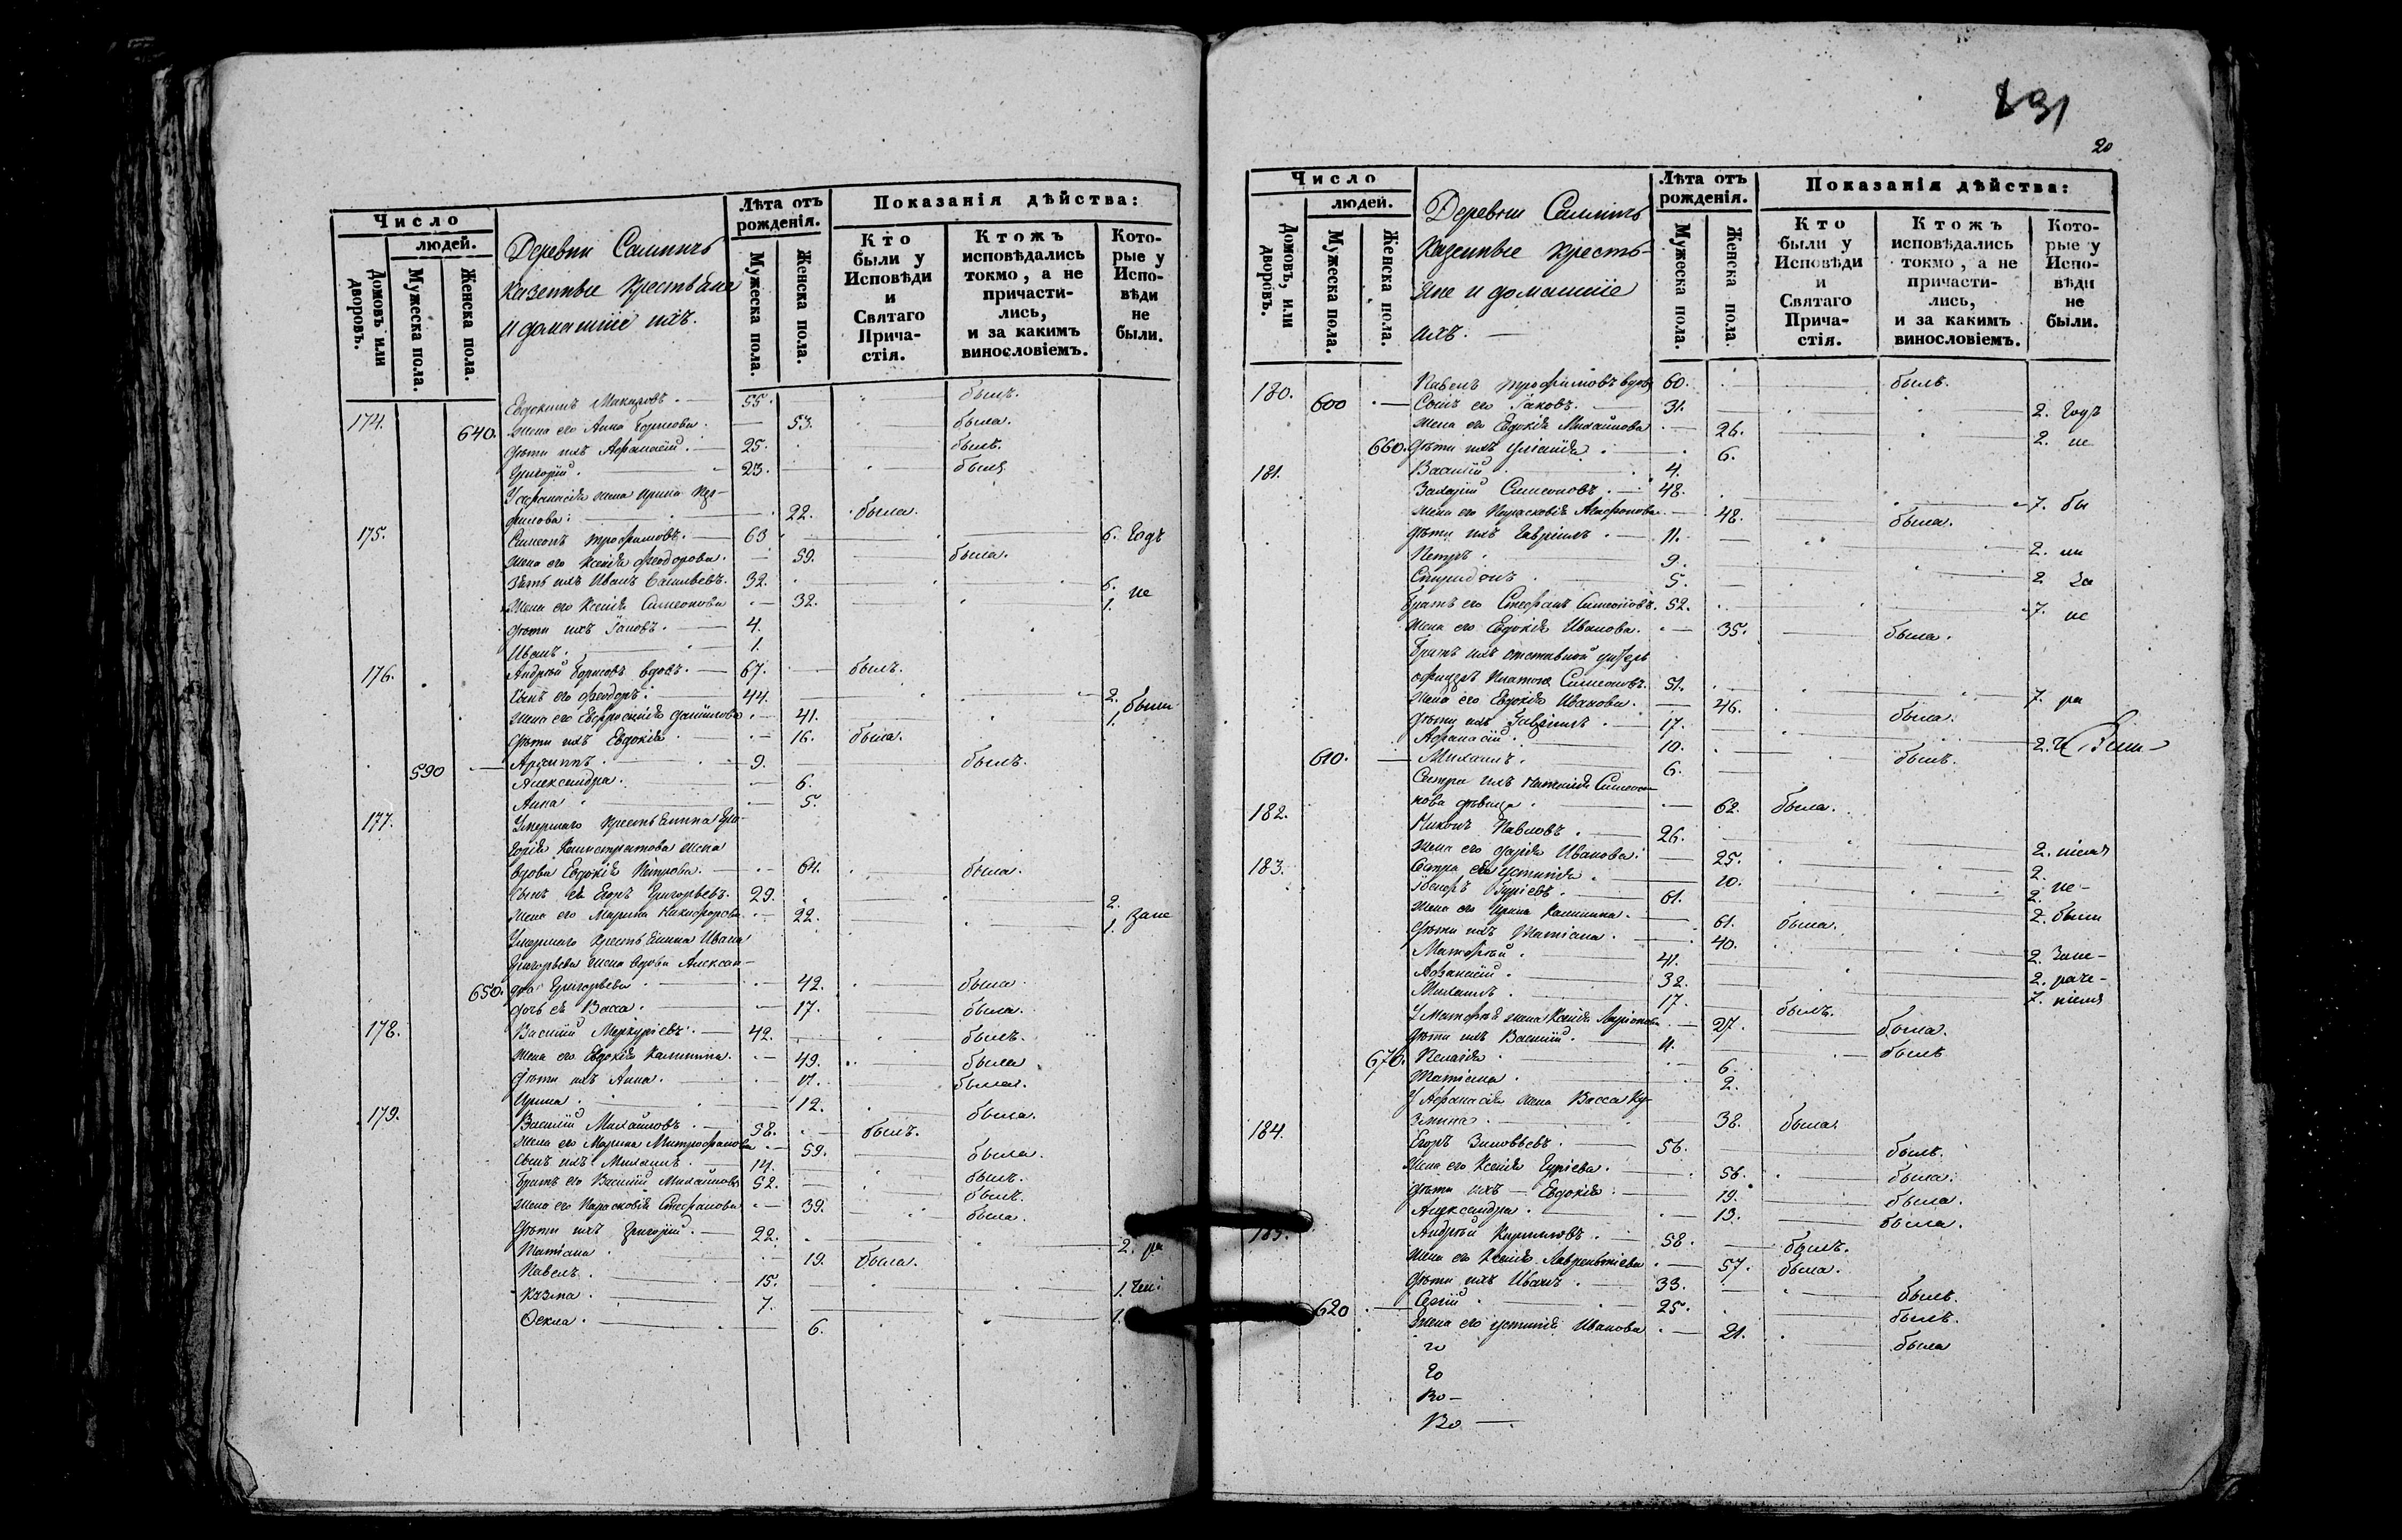 Число
людей.
Домовъ или дворовъ.
Мужеска пола.
Женска пола.
Деревни
казенные крестьяне
и домашніе ихъ.
Лѣта отъ рожденія.
Мужеска пола.
Женска пола.
Показанія дѣйства:
Кто были у Исповѣди и Святаго Прича-
стія.
Ктожъ исповѣдались токмо, а не причасти-
лись, и за какимъ винословіемъ.
Кото-
рые у Испо-
вѣди не были.
Евдокимъ Макаровъ. 55. былъ.
174. 640. Жена его Анна Борисова. 53. была.
Дѣти ихъ Афанасій. 25. былъ.
Григорій. 23. былъ
У Афанасія жена Ирина
филова. 22. была.
175. Симеонъ Трофимовъ. 63 6. годъ
Жена его Ксенія Феодорова. 59. была.
Зять ихъ Иванъ Васильевъ. 32. 6. не
Жена его Ксенія Симеонова 32. 1.
Дѣти ихъ Іаковъ. 4.
Иванъ. 1.
176. Андрей Борисовъ вдовъ. 67. былъ.
Сынъ его Феодоръ. 44. 2. были
Жена его Евфросинія Даниилова 41. 1.
Дѣти ихъ Евдокія. 16. была.
590 Архиппъ. 9. былъ.
Александра. 6.
Анна 5.
177. Умершаго крестьянина Гри-
горія Калистратова жена
вдова Евдокія Петрова. 64. была.
Сынъ ея Егоръ Григорьевъ. 29. 2.
Жена его Марина Никифорова. 22. 1. зане
Умершаго крестьянина Ивана
Григорьева жена вдова Алексан-
650. дра Григорьева 42. была.
Дочь ея Васса. 17. была.
178. Василій Меркуріевъ. 42. былъ.
Жена его Евдокія Калинина. 49. была
Дѣти ихъ Анна. была.
Ирина. 12. была.
179. Василій Михайловъ. 58. былъ.
Жена его Марина Митрофанова 59. была.
Сынъ ихъ Михаилъ. 14. былъ.
Братъ его Василій Михайловъ 52. былъ.
Жена его Парасковія Стефанова 39. была.
Дѣти ихъ Григорій. 22. 2. ра
Татіана. 19. была.
Павелъ. 15. 1. чен
Кузма. 7. 1.
Фекла. 6.
231
20
Число
людей.
Домовъ, или дворовъ.
Мужеска пола.
Женска пола.
Деревни
казенные кресть-
яне и домашніе
ихъ.
Лѣта отъ рожденія.
Мужеска пола.
Женска пола.
Показанія дѣйства:
Кто были у Исповѣди и Святаго Прича-
стія.
Ктожъ исповѣдались токмо, а не причасти-
лись, и за какимъ винословіемъ.
Кото-
рые у Испо-
вѣди не были.
180. Павелъ Трофимовъ вдовъ 60. былъ.
600 Сынъ его Іаковъ. 31. 2. годъ
Жена его Евдокія Михайлова 26. 2. не
660. Дѣти ихъ Уліанія 6.
Василій 4.
181. Захарій Симеоновъ. 48. 7. бы
Жена его Парасковія Агафонова. 48. была.
Дѣти ихъ Гавріилъ. 11. 2. ли
Петръ. 9. 2 за
Спиридонъ. 5.
Братъ его Стефанъ Симеоновъ. 52. 7. не
Жена его Евдокія Иванова. 35. была.
Братъ ихъ отставной унтеръ
офицеръ Платонъ Симеоновъ. 51. 7. ра
Жена его Евдокія Иванова. 46. была.
Дѣти ихъ Гавріилъ. 17. 2.
Афанасій. 10. былъ.
610. Михаилъ. 6.
Сестра ихъ Наталія Симео-
нова дѣвица. 62. была.
182. Никонъ Павловъ. 26. 2. ніемъ
Жена его Дарія Иванова. 25. 2.
Сестра его Устинія 20. 2. не
183. Гуріевъ. 61. 2. были
Жена его Ирина Калинина. 61. была.
Дѣти ихъ Татіана. 40. 2. зане
Матфей. 41. 2. раче-
Афанасій. 32. 7. ніемъ
Михаилъ. 17. былъ.
У Матфея жена Ксенія Ларіонова 27. была.
Дѣти ихъ Василій. 11. былъ
670. Пелагія 6.
Татіана. 2.
У Афанасія жена Васса Ку-
змина. 38. была.
184. Егоръ Зиновьевъ. 56. былъ.
Жена его Ксенія Гуріева. 56. была.
Дѣти ихъ Евдокія 19. была.
Александра. 13. была.
185. Андрей Кирилловъ. 58. былъ.
Жена его Ксенія Лаврентіева 57. была.
Дѣти ихъ Иванъ. 33. былъ.
620 Сергій 25. былъ.
Жена его Устинія Иванова 21. была
го
Ко
Во